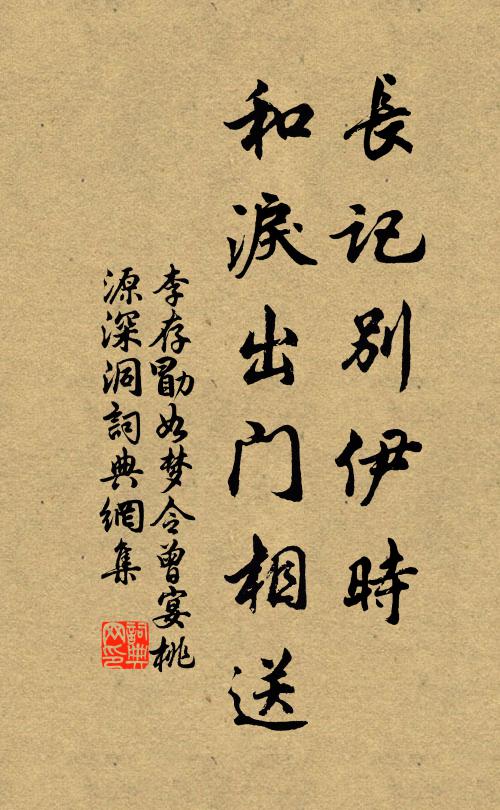 長记别伊時
和淚出门相送
李存勖如梦令曾宴桃
源深洞詞典網集
詞典
网印